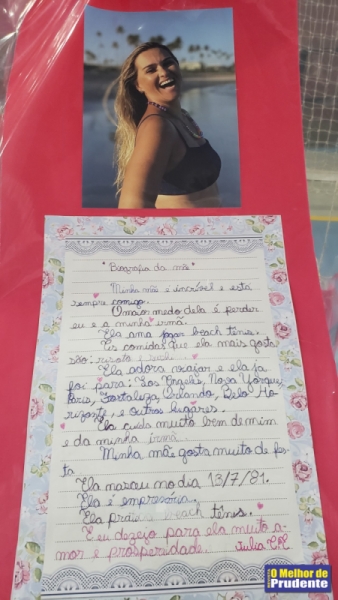 "Biografia da mãe"
Minha mãe é incrível e está
sempre comigo.
O maior medo dela é perder
eu e a minha irmã.
Ela ama jogar beach tênis.
As comidas que ela mais gosta
são: risoto e
Ela adora viajar e ela já
foi para: Los Angeles, Nova Yorque,
Paris, Fortaleza, Orlando, Belo Ho-
rizonte, e outros lugares.
Ela cuida muito bem de mim
e da minha irmã.
Minha mãe gosta muito de fes-
ta.
Ela nasceu no dia 13/7/81.
Ela é empresária.
Ela pratica beach tênis.
E eu dezejo para ela muito a-
mor e prosperidade.
Julia
O Melhor de
Prudente